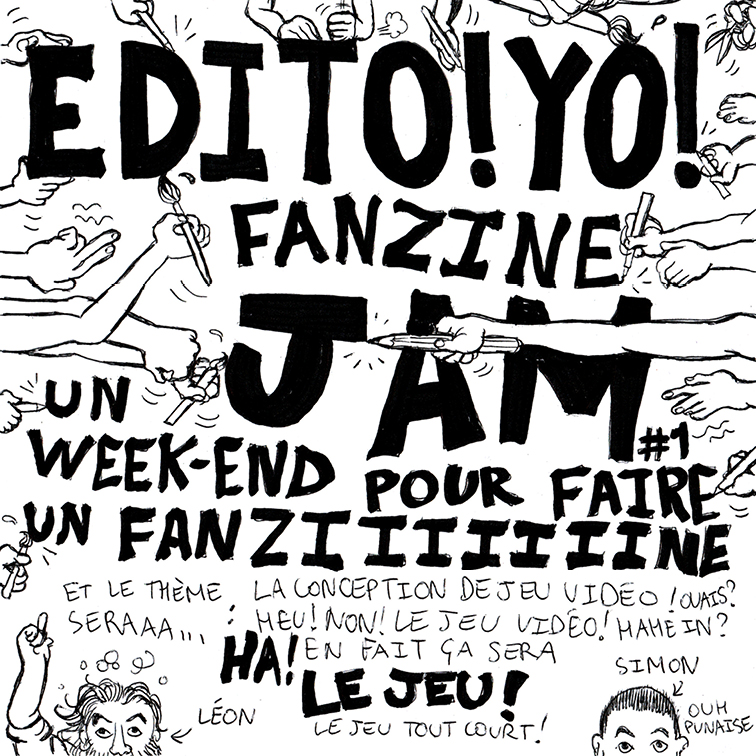 EDITO! YO!
FANZINE
JAM
#1
UN
WEEK-END POUR FAIRE
UN FANZIIIIIIIINE
ET LE THÈME SERAAA... :
LA CONCEPTION DE JEU VIDÉO! OUAIS?
HEU! NON! LE JEU VIDÉO! HAHEIN?
HA! EN FAIT ÇA SERA
LE JEU!
LE JEU TOUT COURT!
LÉON
SIMON
OUH
PUNAISE